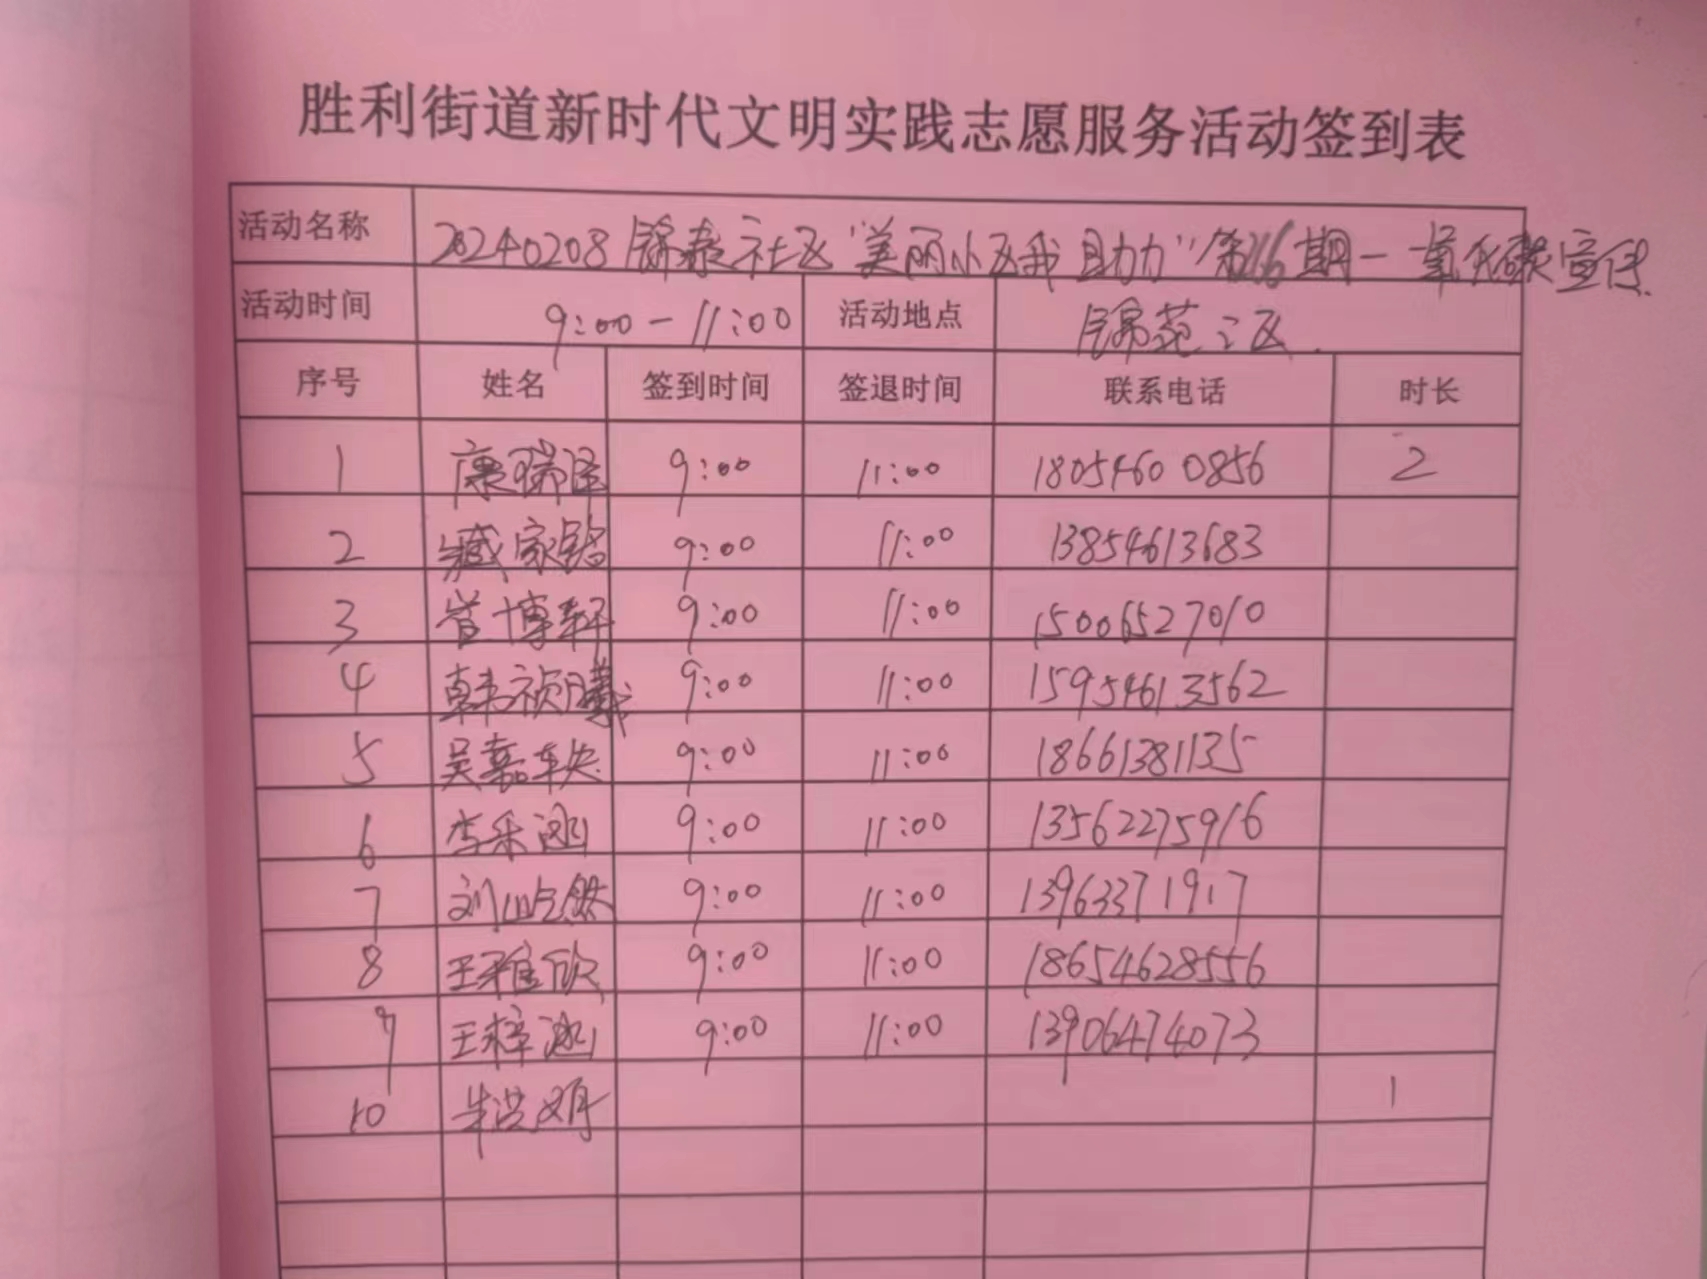 胜利街道新时代文明实践志愿服务活动签到表
活动名称 20240208锦泰社区"美丽小区我助力"第216期一氧化碳宣传
活动时间 9:00-11:00 活动地点 锦苑三区
序号 姓名 签到时间 签退时间 联系电话 时长
1 康瑞 9:00 11:00 18054600856 2
2 臧家铭 9:00 11:00 13854613683
3 博轩 9:00 11:00 15006527010
4 韩祯曦 9:00 11:00 15954613562
5 吴嘉轶 9:00 11:00 18661381135
6 李乐涵 9:00 11:00 13562275916
7 刘 9:00 11:00 13963371917
8 王雅欣 9:00 11:00 18654628556
9 王梓涵 9:00 11:00 13906474073
10 1